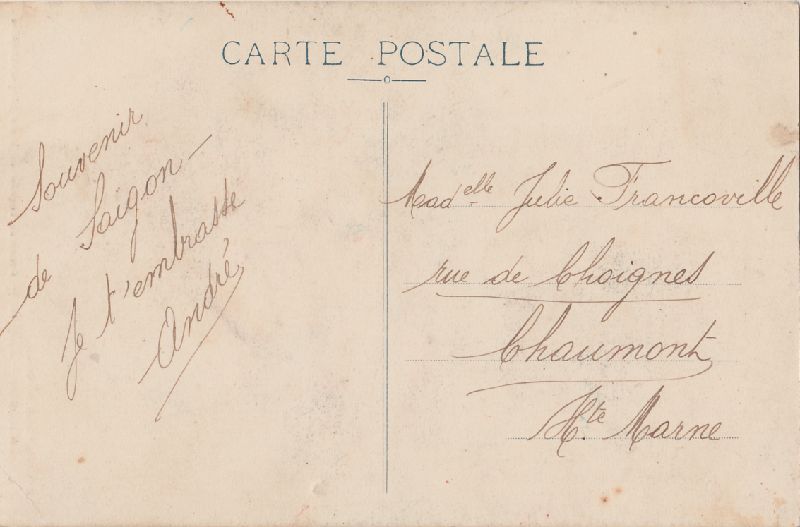 CARTE POSTALE
Souvenir
de Saigon —
Je t'embrasse
André
Mad.elle Julie Francoville
rue de Choignes
Chaumont
Hte Marne